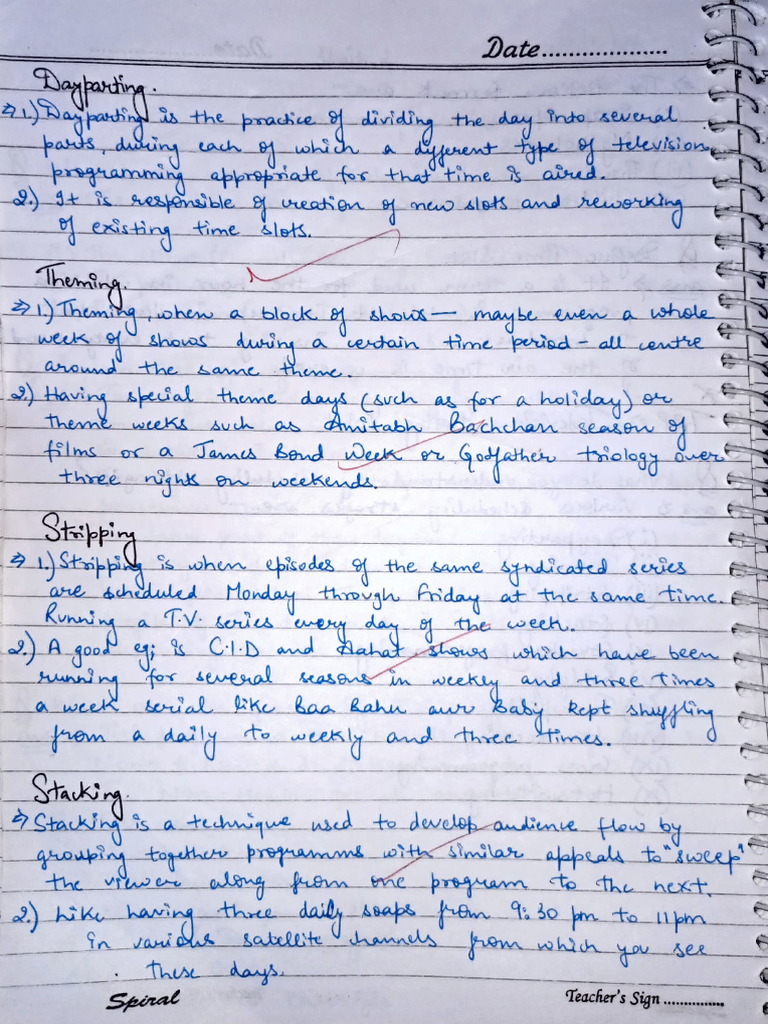 Date...................
Dayparting.
⇒ 1.) Dayparting is the practice of dividing the day into several
parts, during each of which a different type of television
programming appropriate for that time is aired.
2.) It is responsible of creation of new slots and reworking
of existing time slots.
Theming.
⇒ 1.) Theming, when a block of shows — maybe even a whole
week of shows during a certain time period - all centre
around the same theme.
2.) Having special theme days (such as for a holiday) or
theme weeks such as Amitabh Bachchan season of
films or a James Bond Week or Godfather triology over
three nights on weekends.
Stripping
⇒ 1.) Stripping is when episodes of the same syndicated series
are scheduled Monday through Friday at the same time.
Running a T.V. series every day of the week.
2.) A good eg; is C.I.D and Aahat shows which have been
running for several seasons in weekly and three times
a week serial like Baa Bahu aur Baby kept shuffling
from a daily to weekly and three times.
Stacking.
⇒ Stacking is a technique used to develop audience flow by
grouping together programms with similar appeals to "sweep"
the viewer along from one program to the next.
2.) Like having three daily soaps from 9:30 pm to 11pm
in various satellite channels from which you see
these days.
Spiral
Teacher's Sign ...............